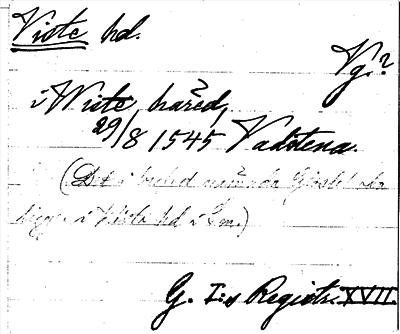 Viste hd.
Vg.?
i Wiste häred,
29/8 1545 Vadstena.
(Det i brefvet nämnda
ligger i Viste hd i Sm.)
G. I:s Registr. XVII.